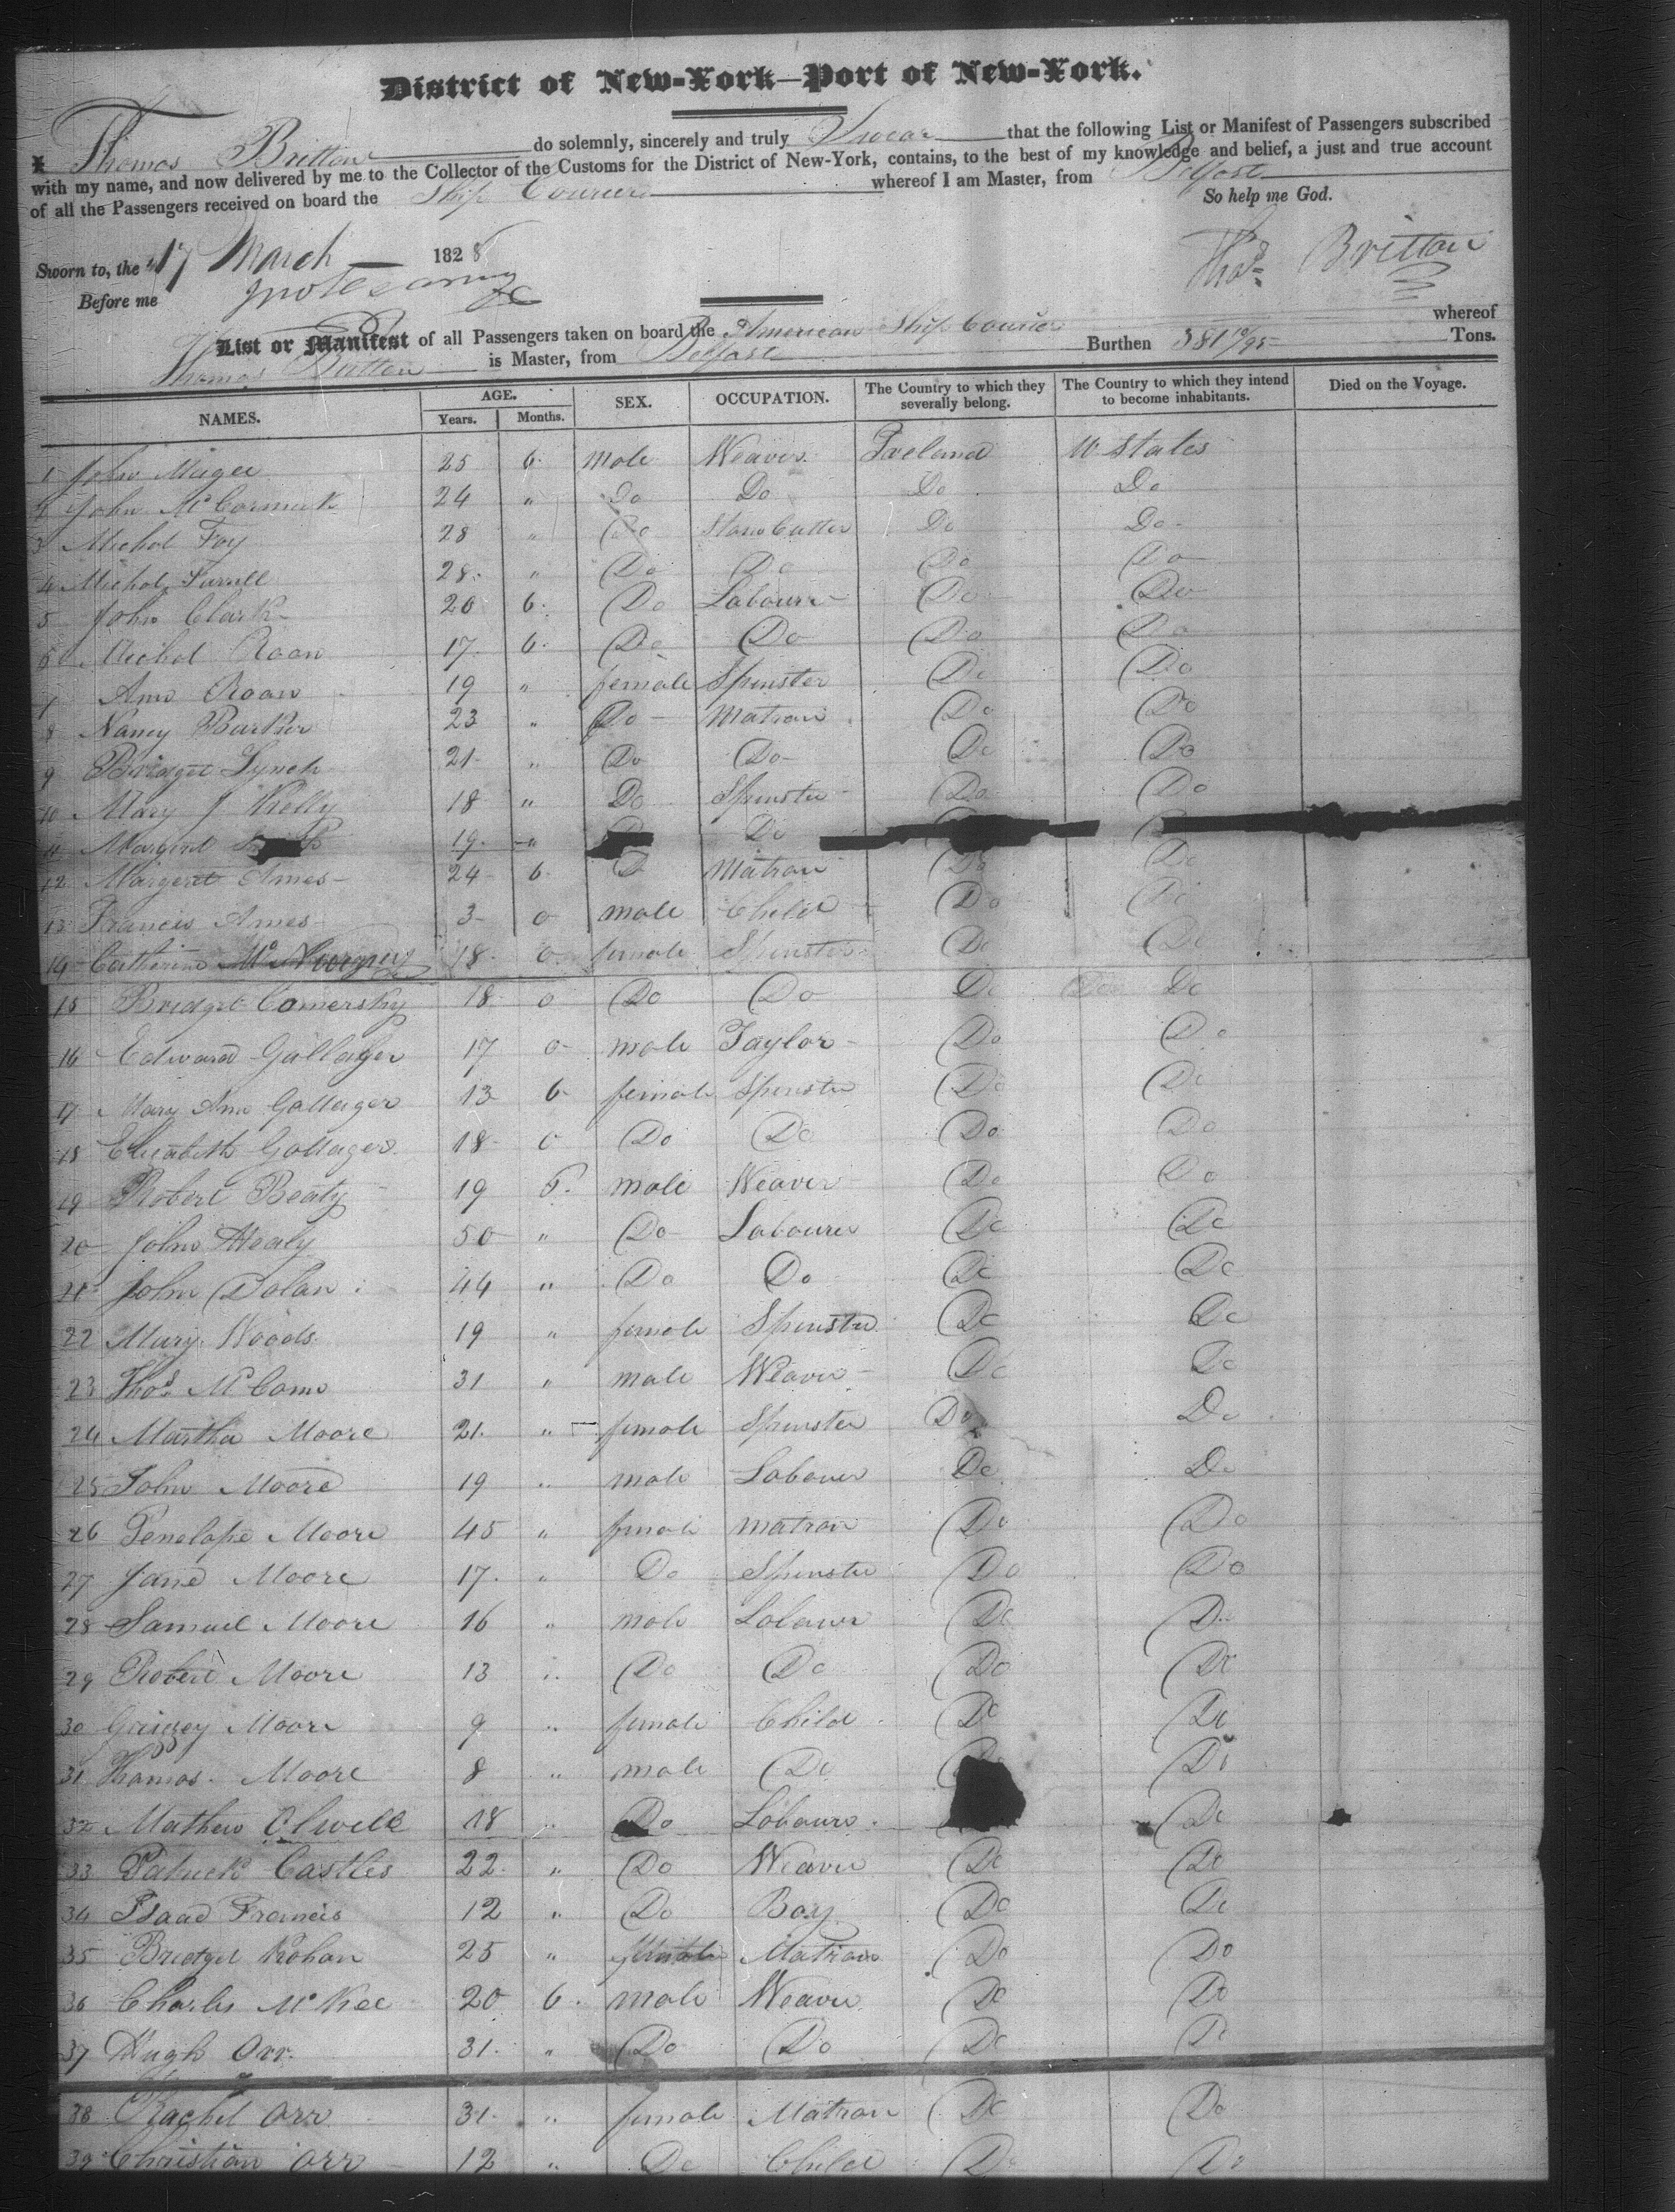 District of New-York—Port of New-York.
Thomas Britton do solemnly, sincerely and truly Swear that the following List or Manifest of Passengers subscribed
with my name, and now delivered by me to the Collector of the Customs for the District of New-York, contains, to the best of my knowledge and belief, a just and true account
of all the Passengers received on board the Ship Courier whereof I am Master, from Belfast
So help me God.
Sworn to, the 17 March 1828
Thos Britton
Before me
List or Manifest of all Passengers taken on board the American Ship Courier whereof
Thomas Britton is Master, from Belfast Burthen 381 10/95 Tons.
NAMES. AGE. Years. Months. SEX. OCCUPATION. The Country to which they severally belong. The Country to which they intend to become inhabitants. Died on the Voyage.
1 John Magee 25 6 male Weaver Ireland U States
2 John McCormick 24 " Do Do Do Do
3 Michol Foy 28 " Do Stone Cutter Do Do
4 Michol 28 " Do Do Do Do
5 John Clark 20 6 Do Labourer Do Do
6 Michol Roan 17 6 Do Do Do Do
7 Ann Roan 19 " female Spinster Do Do
8 Nancy Barker 23 " Do Matron Do Do
9 Bridget Lynch 21 " Do Do Do Do
10 Mary J Kelly 18 " Do Spinster Do Do
11 Margret 19 " Do
12 Margeret Ames 24 6 D Matron Do Do
13 Francis Ames 3 0 male Child Do Do
14 Catherine 18 0 female Spinster Do Do
15 Bridget Comersky 18 0 Do Do Do Do
16 Edward Gallager 17 0 male Taylor Do Do
17 Mary Ann Gallager 13 6 female Spinster Do Do
18 Elizabeth Gallager 18 0 Do Do Do Do
19 Robert Beaty 19 6 male Weaver Do Do
20 John Healy 50 " Do Labourer Do Do
21 John Dolan 44 " Do Do Do Do
22 Mary Woods 19 " female Spinster Do Do
23 Thos McComo 31 " male Weaver Do Do
24 Martha Moore 21 " female Spinster Do Do
25 John Moore 19 " male Labourer Do Do
26 Penelope Moore 45 " female Matron Do Do
27 Jane Moore 17 " Do Spinster Do Do
28 Samuel Moore 16 " male Labourer Do Do
29 Robert Moore 13 " Do Do Do Do
30 Moore 9 " female Child Do Do
31 Thomas Moore 8 " male Do Do
32 Mathew Olwell 18 " Do Labourer Do
33 Patrick Castles 22 " Do Weaver Do Do
34 Isaac Francis 12 " Do Boy Do Do
35 Bridget Kohan 25 " female Matron Do Do
36 Charles McKee 20 6 male Weaver Do Do
37 Hugh Orr 31 " Do Do Do Do
38 Rachel Orr 31 " female Matron Do Do
39 Christian Orr 12 " Do Child Do Do